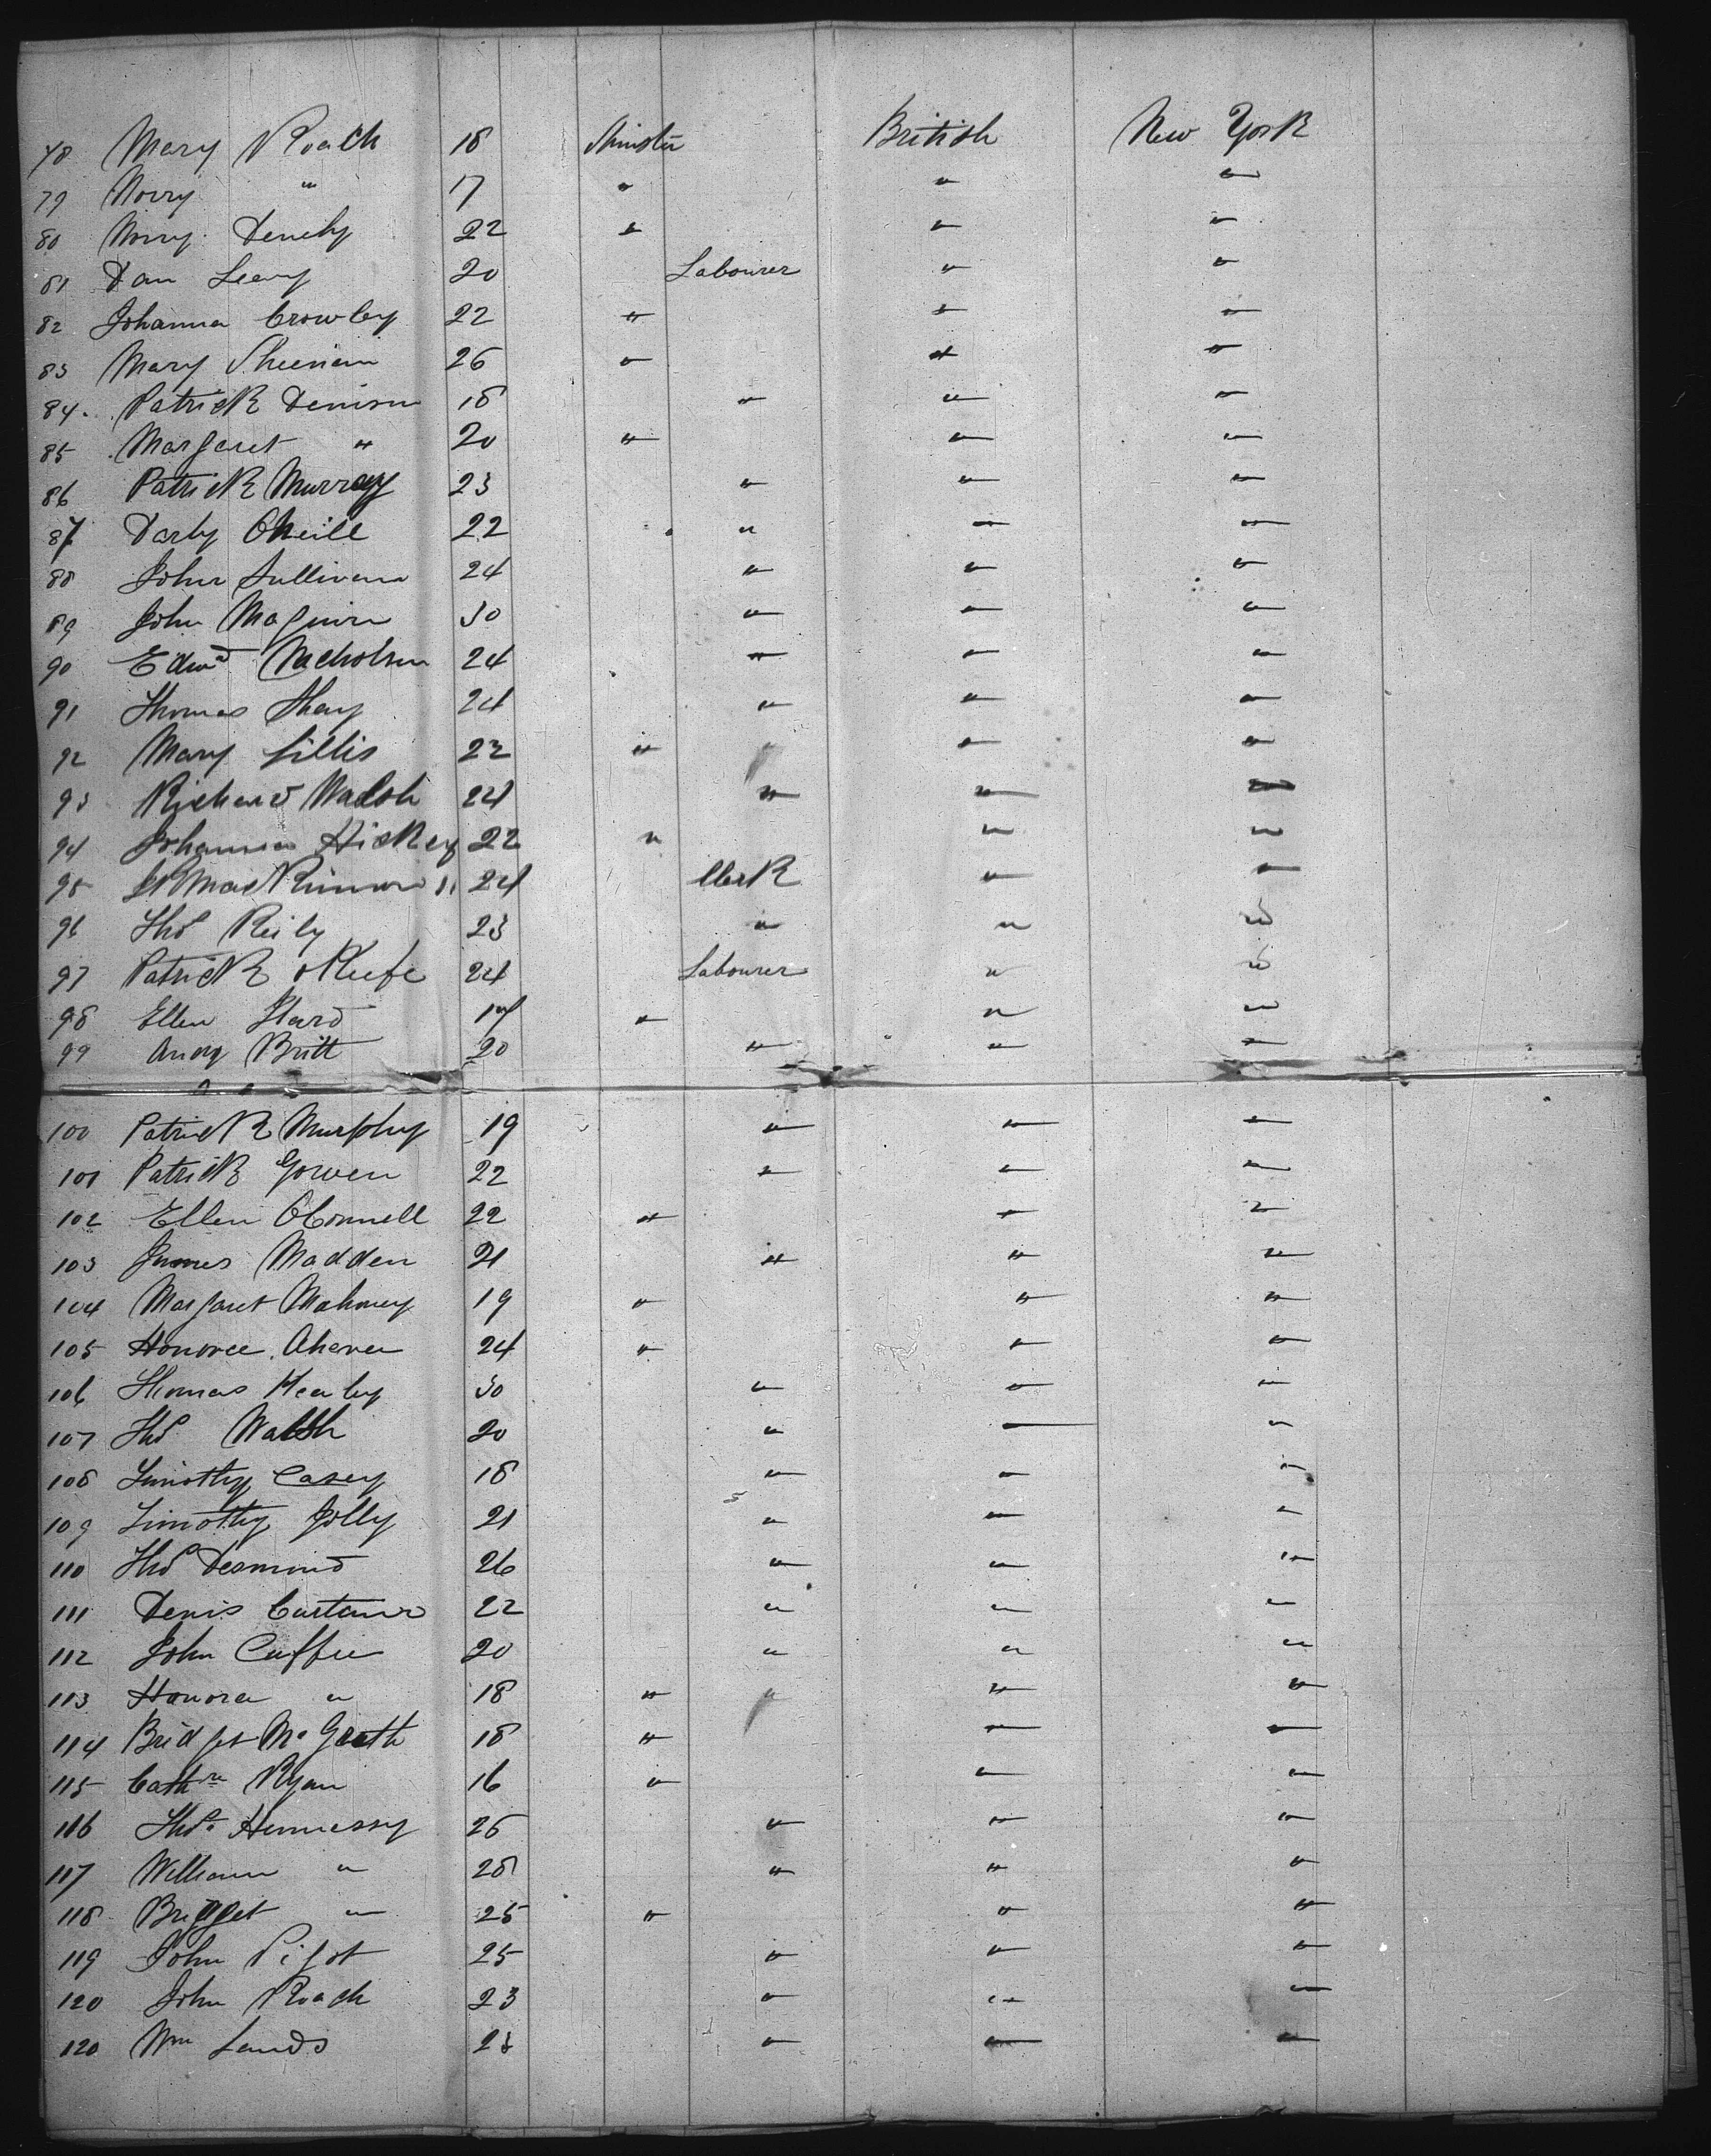 78 Mary Roach 18 Spinster British New York
79 Norry " 17 " " "
80 Norry Denehy 22 " " "
81 Dan Leary 20 Labourer " "
82 Johanna Crowley 22 " " "
83 Mary Sheehan 26 " " "
84. Patrick Denison 18 " " "
85 Margaret " 20 " " "
86 Patrick Murray 23 " " "
87 Darby ONeill 22 " " "
88 John Sullivan 24 " " "
89 John Maguire 30 " " "
90 Edwd Nicholson 24 " " "
91 Thomas Shay 24 " " "
92 Mary Lillis 22 " " " "
93 Richard Walsh 24 " " "
94 Johanna Hickey 22 " " "
95 24 Clerk " "
96 Thos Reily 23 " " "
97 Patrick OKeefe 24 Labourer " "
98 Ellen 17 " " "
99 Andy Britt 20 " " "
100 Patrick Murphy 19 " " "
101 Patrick Gowen 22 " " "
102 Ellen OConnell 22 " " "
103 James Madden 21 " " "
104 Margaret Mahoney 19 " " "
105 Honora Ahern 24 " " "
106 Thomas Healey 30 " " "
107 Thos Walsh 20 " " "
108 Timothy Casey 18 " " "
109 Timothy Jolly 21 " " "
110 Thos Desmond 26 " " "
111 Denis 22 " " "
112 John Cuffee 20 " " "
113 Honora " 18 " " " "
114 Bridget McGrath 18 " " "
115 Cathne Ryan 16 " " "
116 Thos. Hennessy 26 " " "
117 William " 28 " " "
118 Bridget " 25 " " "
119 John Pigot 25 " " "
120 John Roach 23 " " "
120 Wm Lands 23 " " "